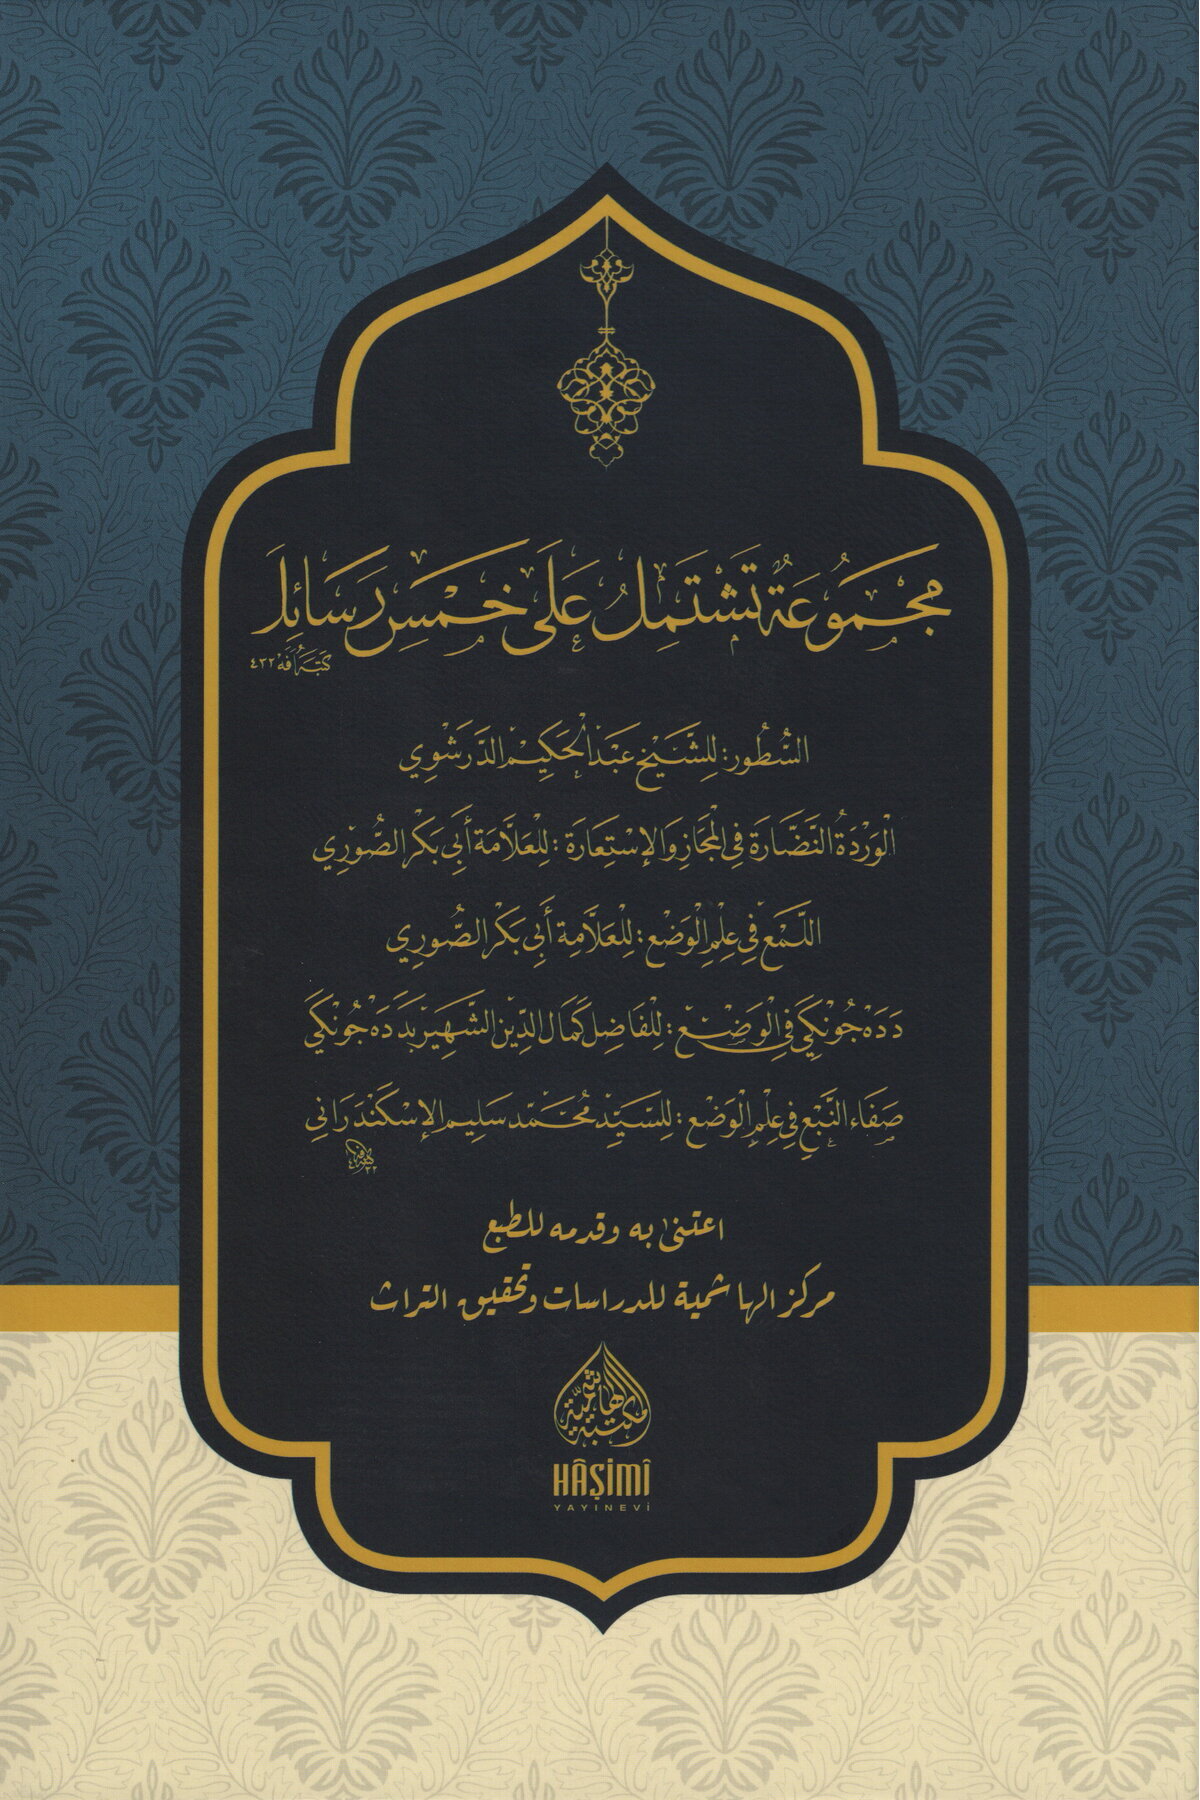 مَجْمُوعَةٌ تَشْتَمِلُ عَلَى خَمْسِ رَسَائِلَ
السُّطُور: لِلشَّيْخِ عَبْدِ الْحَكِيمِ الدَّرَشْوِي
الْوَرْدَةُ النَّضَّارَة فِي الْمَجَازِ وَالْإِسْتِعَارَة: لِلْعَلَّامَة أَبِي بَكْر الصُّورِي
اللُّمَع فِي عِلْمِ الْوَضْع: لِلْعَلَّامَةِ أَبِي بَكْر الصُّورِي
دَدَه جُونْكَي فِي الْوَضْع: لِلْفَاضِلِ كَمَالِ الدِّينِ الشَّهِيرِ بِدَدَه جُونْكَي
صَفَاء النَّبْعِ فِي عِلْمِ الْوَضْع: لِلسَّيِّدِ مُحَمَّد سَلِيم الْإِسْكَنْدَرَانِي
اعتنى به وقدمه للطبع
مركز الهاشمية للدراسات وتحقيق التراث
مكتبة هاشمية
HÂŞİMÎ
YAYINEVİ